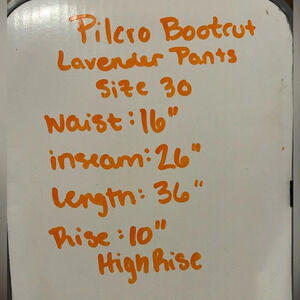 Pilcro Bootcut
Lavender Pants
Size 30
Waist: 16"
inseam: 26"
Length: 36"
Rise: 10"
High Rise